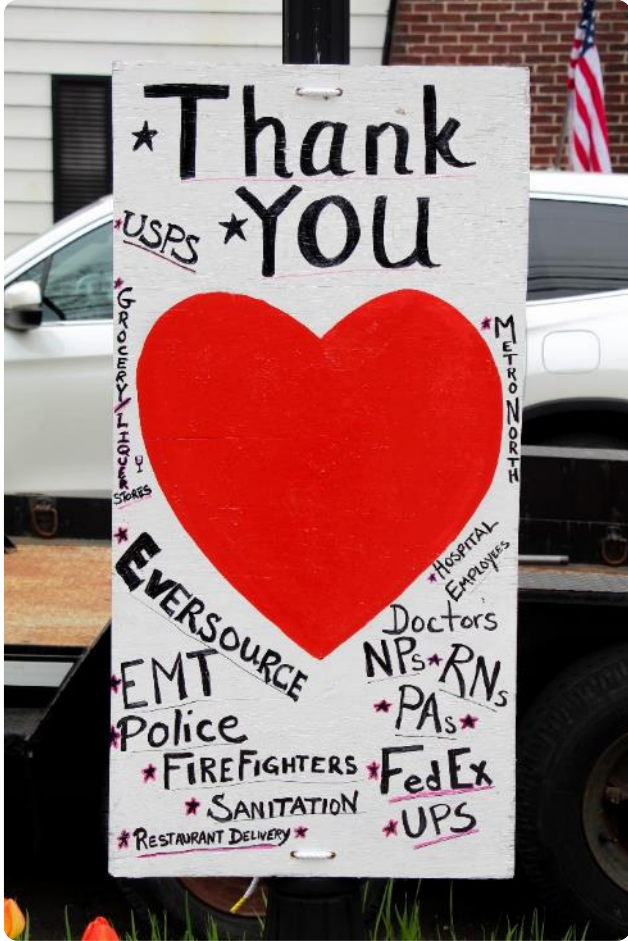 Thank
YOU
USPS
GROCERY/LIQUER
STORES
METRO NORTH
EVERSOURCE
HOSPITAL
EMPLOYEES
Doctor's
NPs RNs
PAs
EMT
Police
FIREFIGHTERS
SANITATION
RESTAURANT DELIVERY
FedEx
UPS